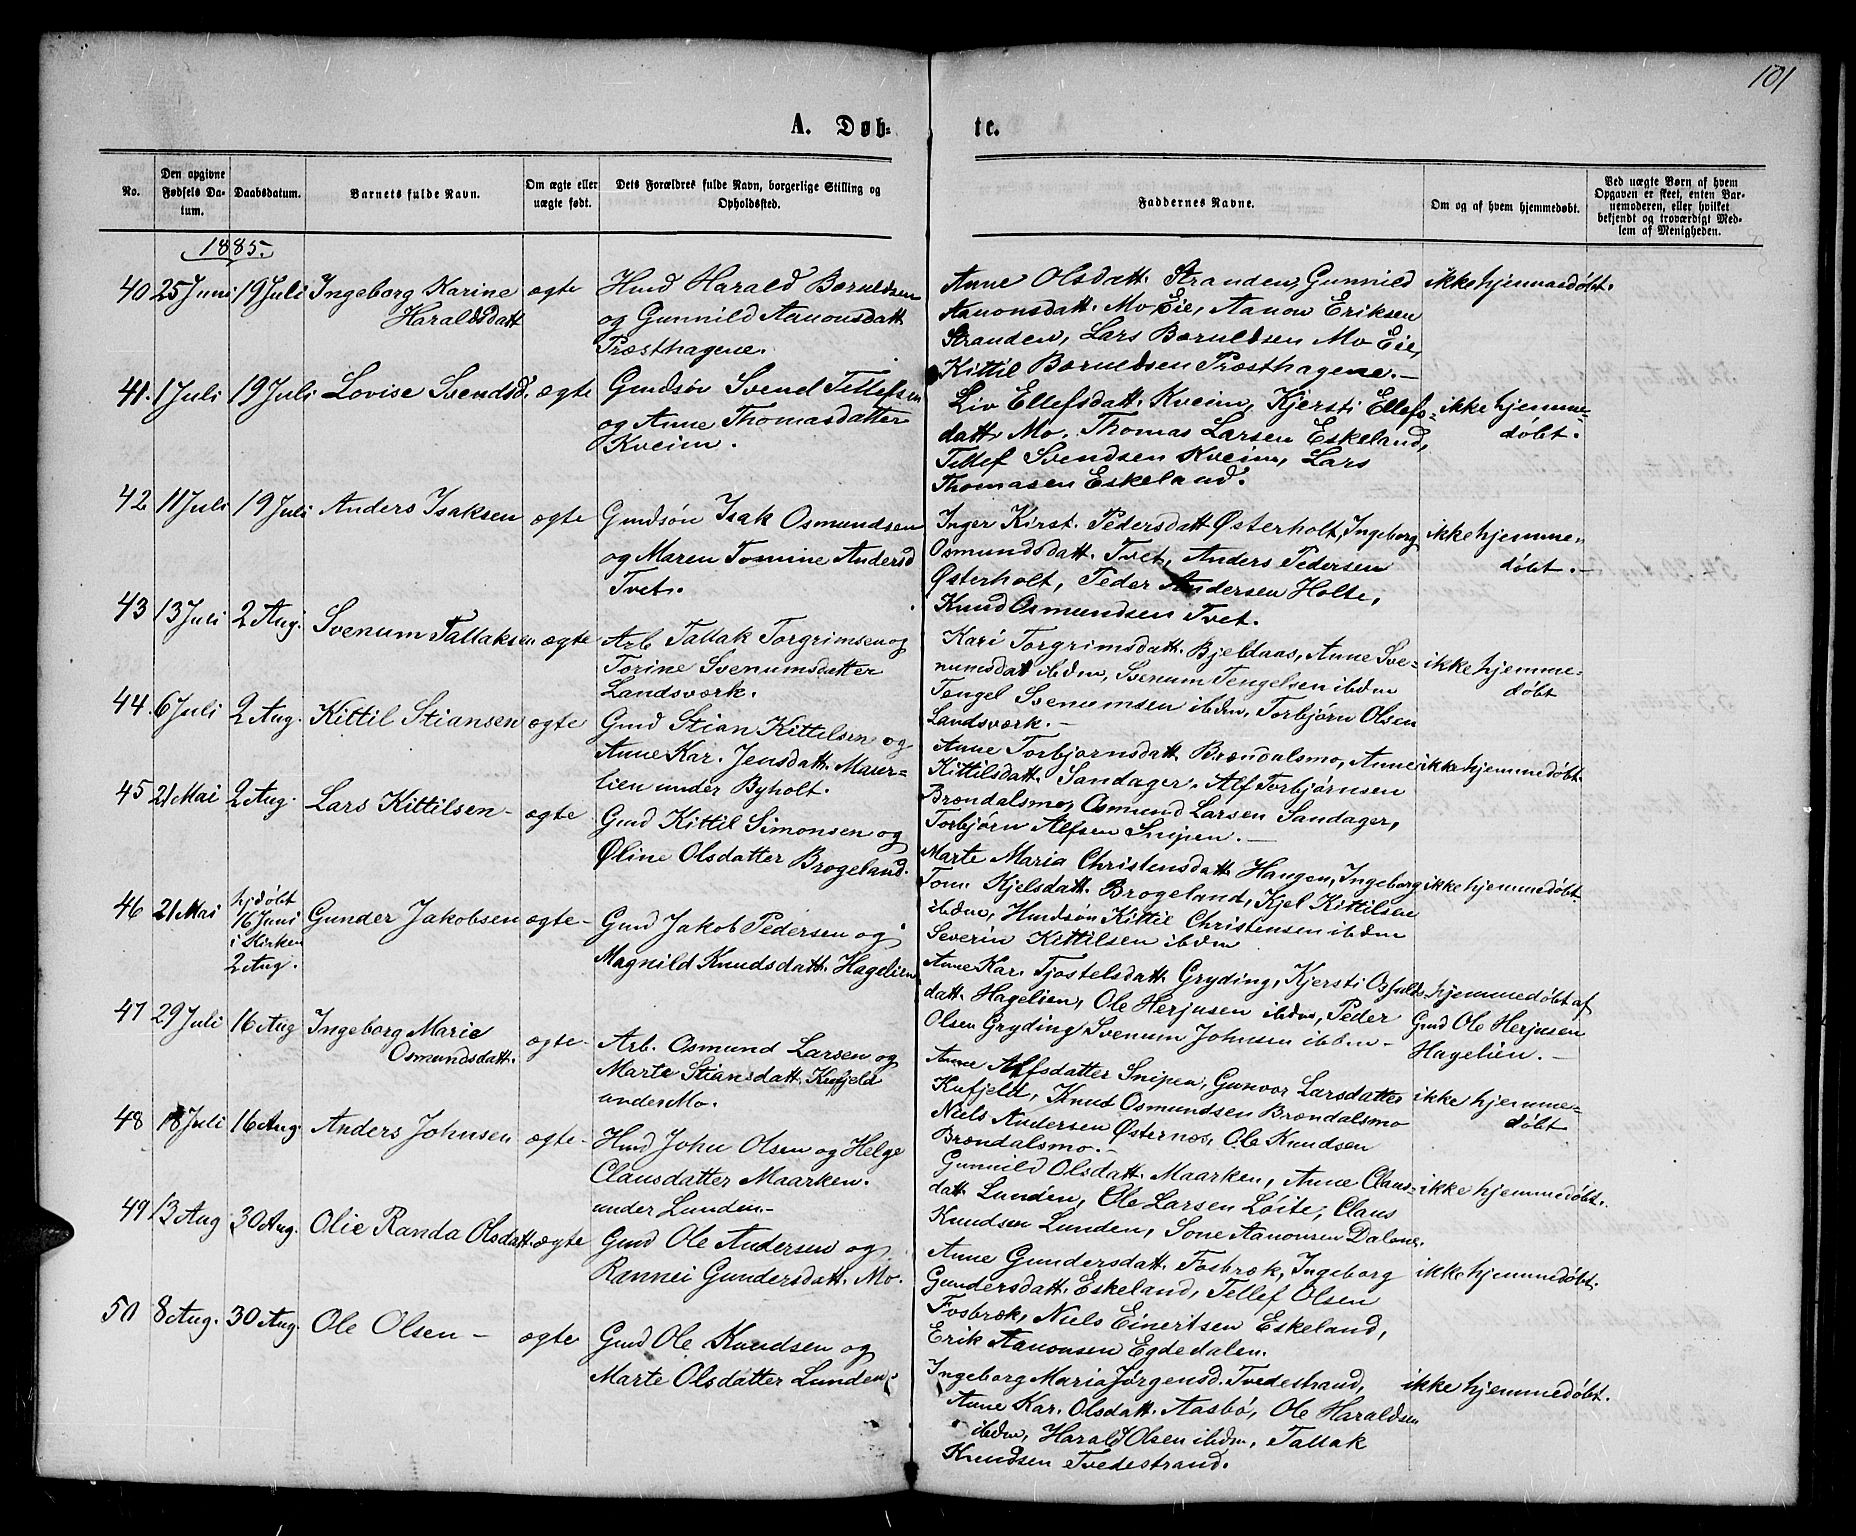 101
A. Døb-
te.
No.
Den opgivne Fødsels Da-tum.
Daabsdatum.
Barnets fulde Navn.
Om ægte eller uægte født.
Dets Forældres fulde Navn, borgerlige Stilling og Opholdssted.
Faddernes Navne.
Om og af hvem hjemmedøbt.
Ved uægte Børn af hvem Opgaven er skeet, enten Bar-nemoderen, eller hvilket bekjendt og troværdigt Med-lem af Menigheden.
1885.
40 25 Juni 19 Juli Ingeborg Karine ægte
Haraldsdatt
Husd Harald Boruldsen
og Gunnild Aanonsdatt
Præsthagene.
Anne Olsdatt. Stranden, Gunnild
Aanonsdatt. Mo Eie, Aanon Eriksen
Stranden, Lars Boruldsen Mo Eie,
Kittil Boruldsen Præsthagene.-
ikke hjemmedøbt.
41. 1 Juli 19 Juli Lovise Svendsd. ægte
Gmdsøn Svend Tellefsen
og Anne Thomasdatter
Kveim.
Liv Ellefsdatt. Kveim, Kjersti Ellefs-
datt. Mo. Thomas Larsen Eskeland,
Tellef Svendsen Kveim, Lars
Thomasen Eskeland.
ikke hjemme-
døbt.
42 11 Juli 19 Juli Anders Isaksen ægte
Gmdsøn Isak Osmundsen
og Maren Tomine Andersd
Tvet.
Inger Kirst. Pedersdatt Østerholt, Ingeborg
Osmundsdatt. Tvet, Anders Pedersen
Østerholt, Peder Andersen Holte,
Knud Osmundsen Tvet.
ikke hjemme-
døbt.-
43 13 Juli 2 Aug. Svenum Tallaksen ægte
Arb Tallak Torgrimsen og
Torine Svenumsdatter
Landsværk.
Kari Torgrimsdatt. Bjeldaas, Anne Sve-
numsdatt ibdm, Svenum Tengelsen ibdm
Tengel Svenumsen ibdm, Torbjørn Olsen
Landsværk.-
ikke hjemme-
døbt
44. 6 Juli 2 Aug. Kittil Stiansen ægte
Gmd Stian Kittelsen og
Anne Kar. Jensdatt. Maier-
lien under Byholt.
Anne Torbjørnsdatt Brændalsmo, Anne
Kittilsdatt. Sandager. Alf Torbjørnsen
Brændalsmo, Osmund Larsen Sandager,
Torbjørn Alfsen Snipen.-
ikke hjemmedøbt.
45 21 Mai 2 Aug. Lars Kittilsen- ægte
Gmd Kittil Simonsen og
Øline Olsdatter Brogeland.
Marte Maria Christensdatt Haugen, Ingeborg
Tom. Kjelsdatt. Brogeland, Kjel Kittilsen
ibdm, Husdsøn Kittil Christensen ibdm
Severin Kittilsen ibdm
ikke hjemmedøbt.
46 21 Mai hjdøbt
16 Juni
i Kirken
2 Aug. Gunder Jakobsen ægte-
Gmd Jakob Pedersen og
Magnild Knudsdatt. Hagelien
Anne Kar. Tjostelsdatt Gryding, Kjersti Osfulds-
datt. Hagelien, Ole Herjusen ibdm, Peder
Olsen Gryding, Svenum Johnsen ibdm-
hjemmedøbt af
Gmd Ole Herjusen
Hagelien.-
47 29 Juli 16 Aug Ingeborg Marie ægte-
Osmundsdatt.
Arb. Osmund Larsen og
Marte Stiansdatt Kufjeld
under Mo.
Anne Alfsdatter Snipen, Gunvor Larsdatter
Kufjeld, Knut Osmundsen Brændalsmo
Niels Andersen Østernes, Ole Knudsen
Brændalsmo.-
ikke hjemme-
døbt
48 18 Juli 16 Aug. Anders Johnsen ægte-
Husd John Olsen og Helge
Clausdatter Maarken.
under Lunden.-
Gunnild Olsdatt. Maarken, Anne Claus-
datt. Lunden, Ole Larsen Løite, Claus
Knudsen Lunden, Sone Aanonsen Dalene.
ikke hjemmedøbt.
49 13 Aug 30 Aug. Olie Randa Olsdatt. ægte
Gmd Ole Andersen og
Rannei Gundersdatt. Mo.
Anne Gundersdatt. Fosbræk, Ingeborg
Gundersdatt. Eskeland, Tellef Olsen
Fosbræk, Niels Einertsen Eskeland,
Erik Aanonsen Egdedalen.
ikke hjemmedøbt.
50 8 Aug. 30 Aug. Ole Olsen- ægte
Gmd Ole Knudsen og
Marte Olsdatter Lunden
Ingeborg Maria Jørgensd. Tvedestrand,
Anne Kar. Olsdatt. Aasbø, Ole Haraldsen
ibdm, Harald Olsen ibdm, Tallak
Knudsen Tvedestrand.
ikke hjemmedøbt.